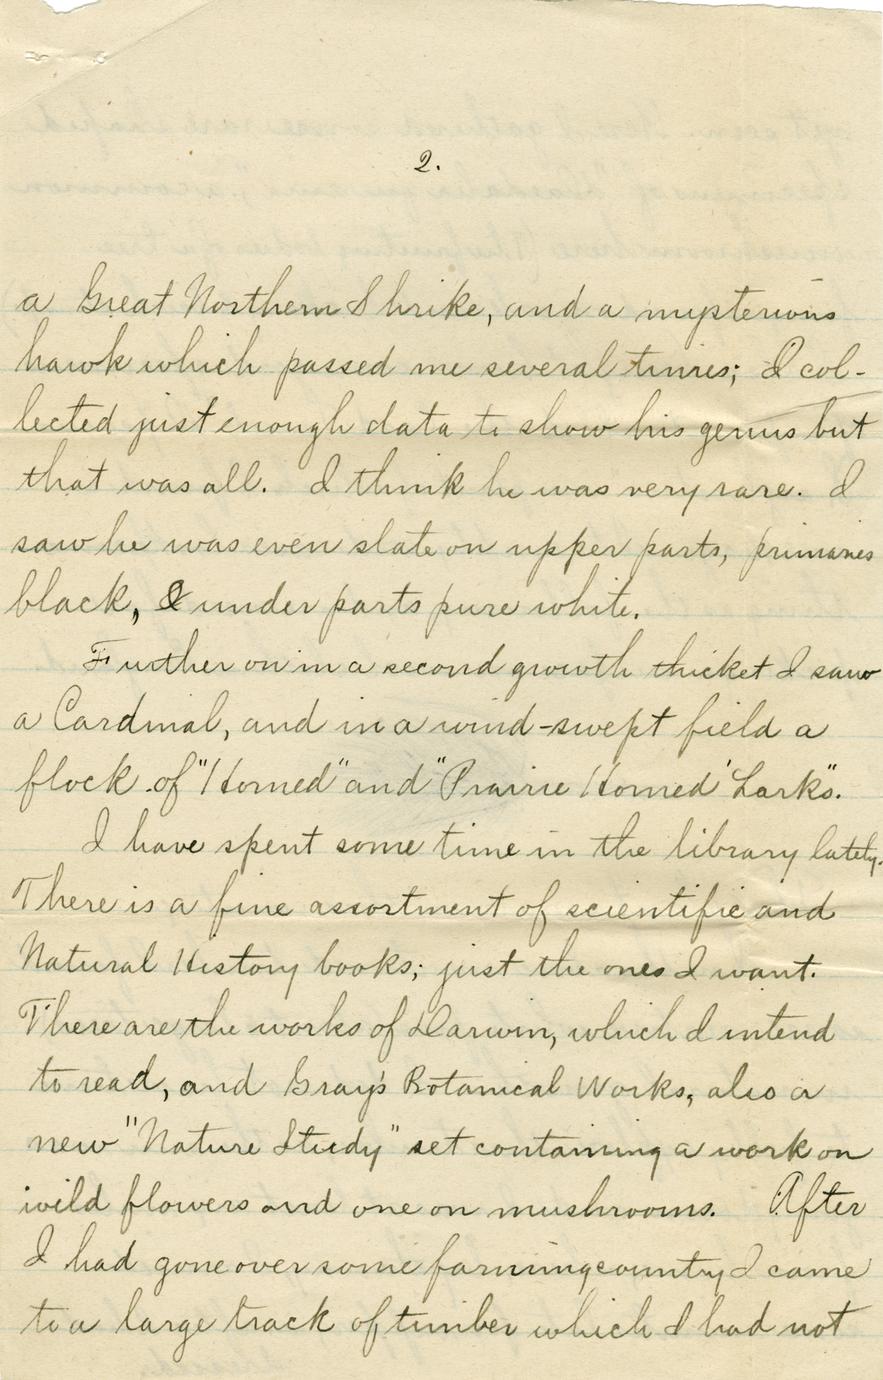 2.
a Great Northern Shrike, and a mysterious
hawk which passed me several times; I col-
lected just enough data to show his genus but
that was all. I think he was very rare. I
saw he was even slate on upper parts, primaries
black, & under parts pure white.
Further on in a second growth thicket I saw
a Cardinal, and in a wind-swept field a
flock of "Horned" and "Prairie Horned' Larks".
I have spent some time in the library lately.
There is a fine assortment of scientific and
Natural History books; just the ones I want.
There are the works of Darwin, which I intend
to read, and Gray's Botanical Works, also a
new "Nature Study" set containing a work on
wild flowers and one on mushrooms. After
I had gone over some farming country I came
to a large track of timber which I had not